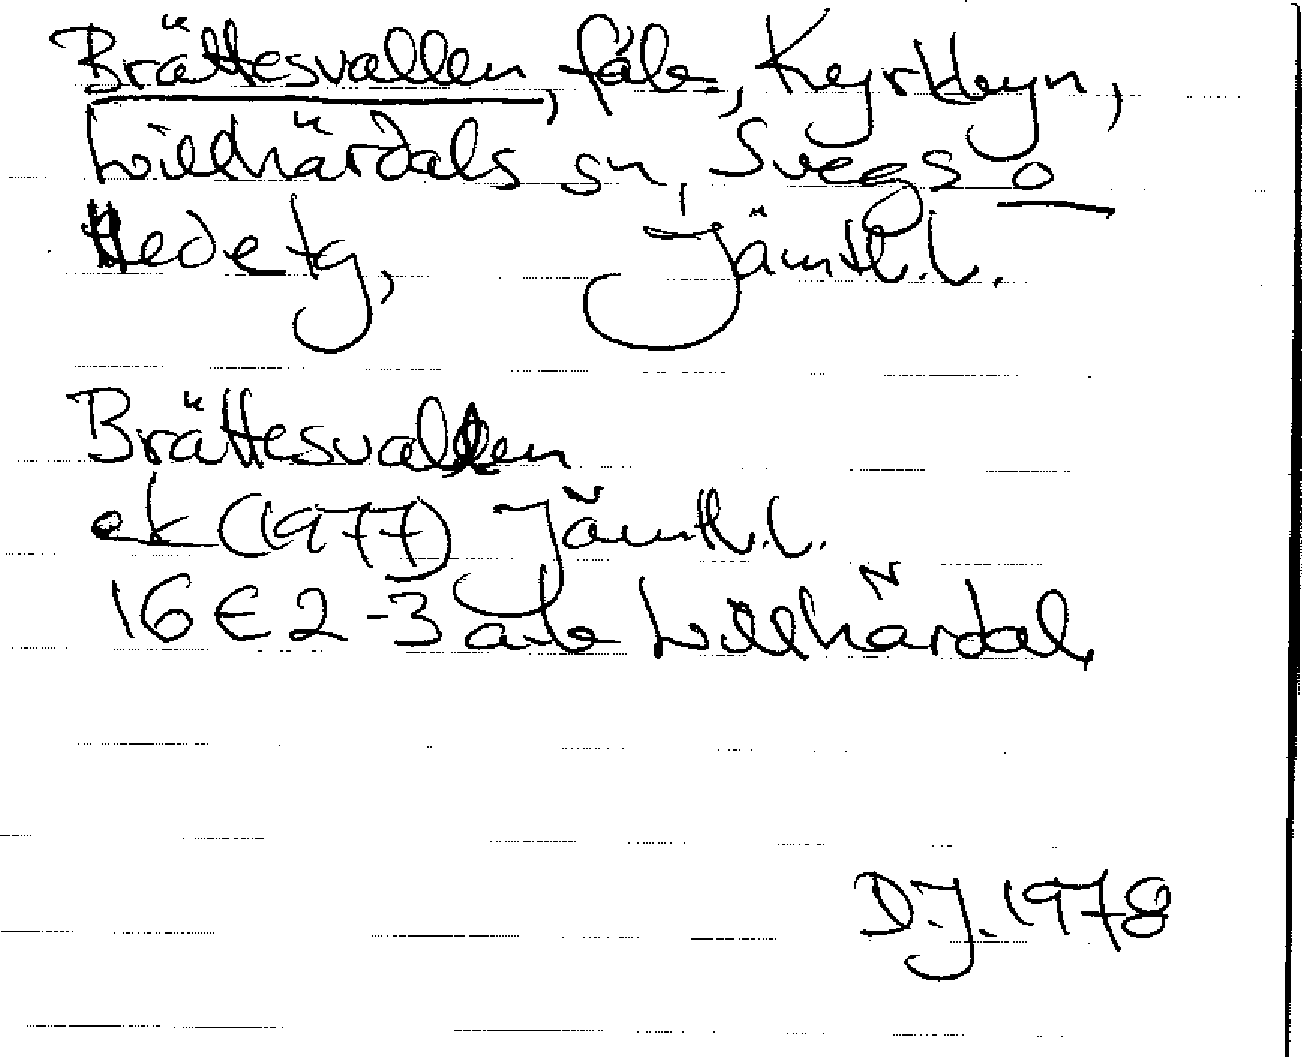 Brättesvallen, fäb, Kyrkbyn,
Lillhärdals sn, Svegs o
Hede tg, Jämtl.l.
Brättesvallen
ek (1977) Jämtl.l.
16E 2-3 ab Lillhärdal,
D.J. 1978